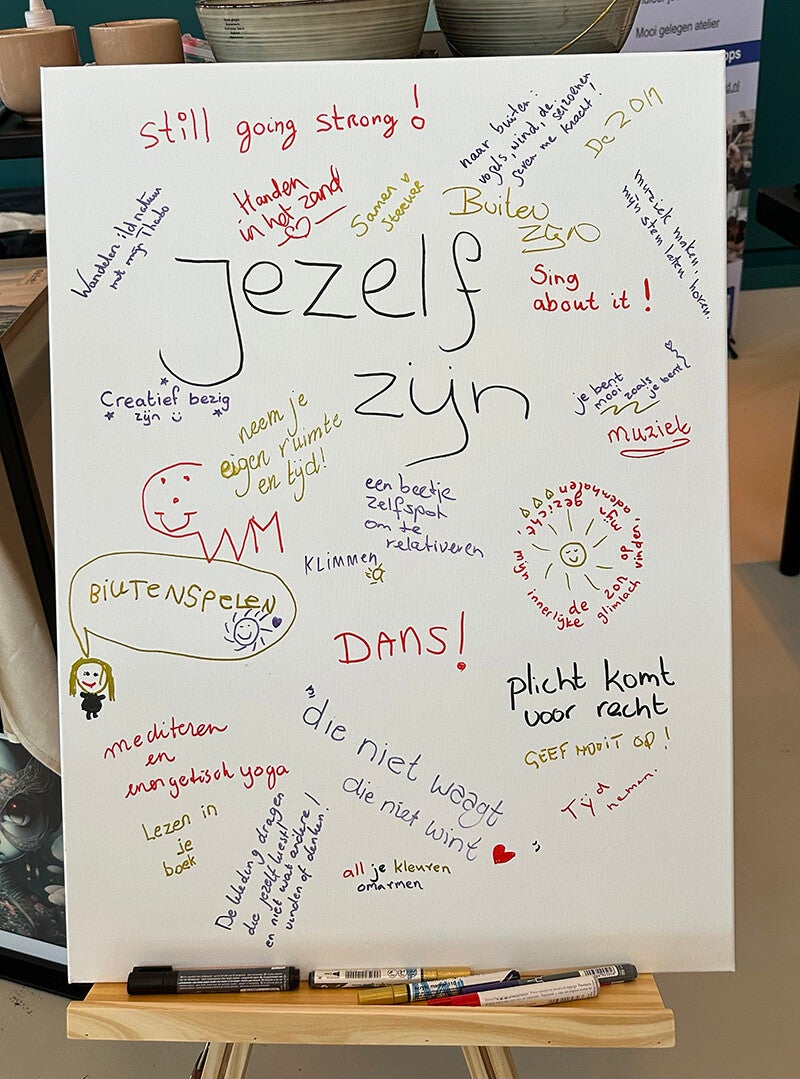 Mooi gelegen atelier
still going strong!
naar buiten:
vogels, wind, de seizoenen
geven me kracht!
De zon
Wandelen i/d natuur
met mijn Thabo
Handen
in het zand
Samen
sterker
Buiten
zijn
muziek maken,
mijn stem laten horen.
jezelf
zijn
Sing
about it!
Creatief bezig
zijn
neem je
eigen ruimte
en tijd!
je bent
mooi zoals
je bent
muziek
WM
een beetje
zelfspot
om te
relativeren
KLIMMEN
de zon op mijn gezicht,
adem halen,
mijn innerlijke glimlach vinden
BIUTENSPELEN
DANS!
plicht komt
voor recht
GEEF NOOIT OP!
Tijd
nemen.
mediteren
en
energetisch yoga
"die niet waagt
die niet wint"
Lezen in
je
boek
De kleding dragen
die jezelf kiest!
en niet wat andere
vinden of denken!
all je kleuren
omarmen